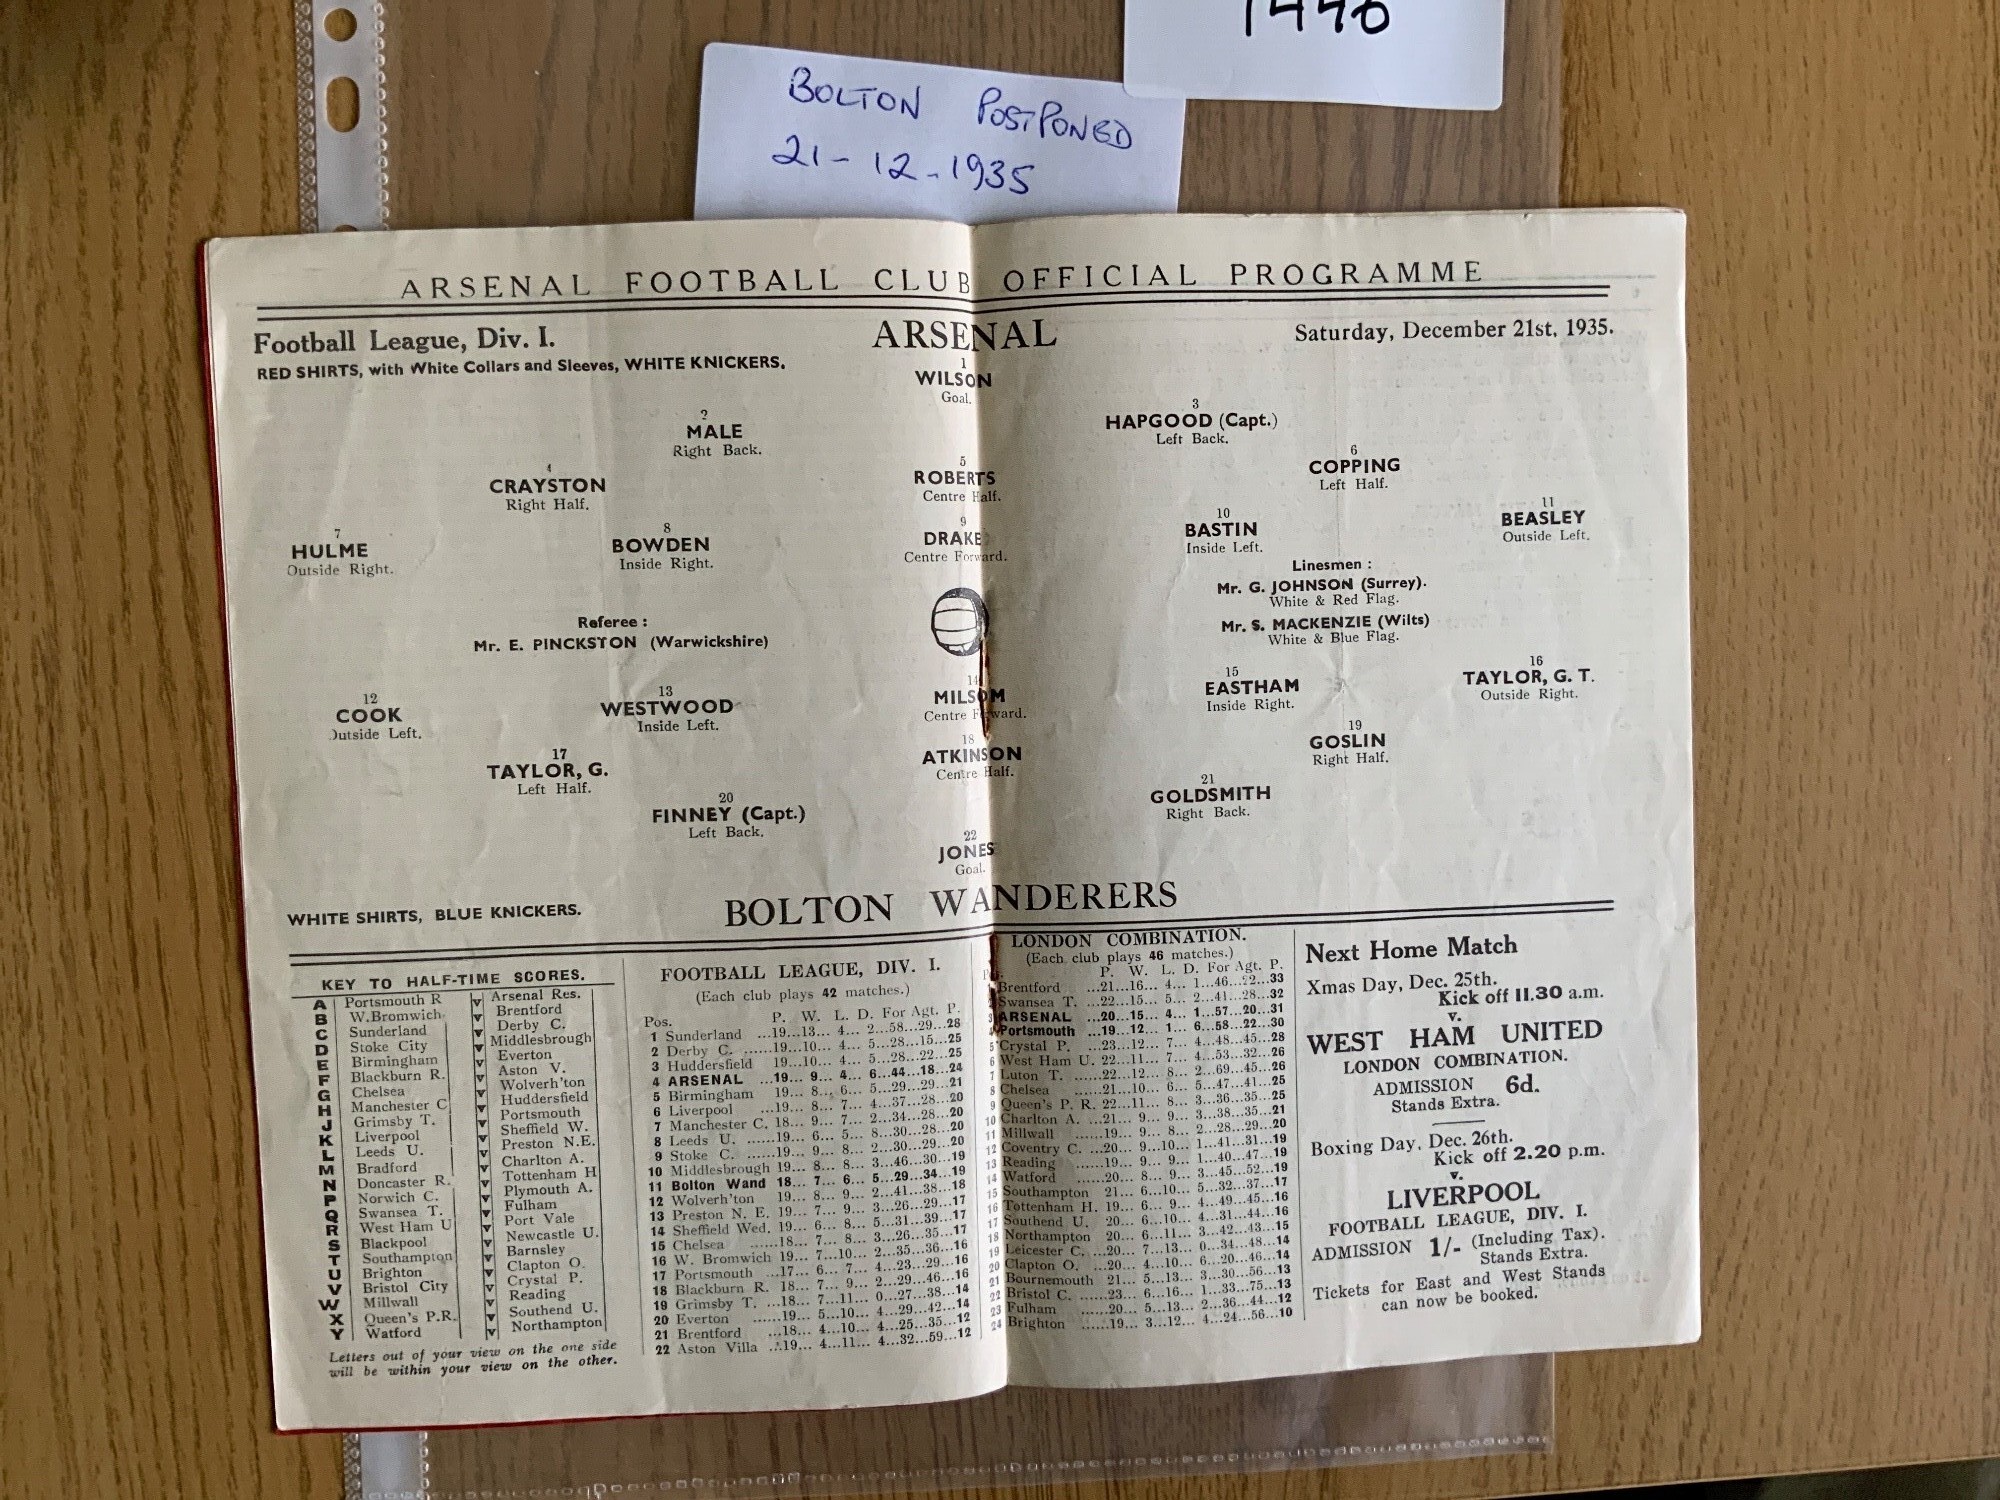 1446
BOLTON POSTPONED
21-12-1935
ARSENAL FOOTBALL CLUB OFFICIAL PROGRAMME
Football League, Div. I.
ARSENAL
Saturday, December 21st, 1935.
RED SHIRTS, with White Collars and Sleeves, WHITE KNICKERS.
1
WILSON
Goal.
2
MALE
Right Back.
3
HAPGOOD (Capt.)
Left Back.
4
CRAYSTON
Right Half.
5
ROBERTS
Centre Half.
6
COPPING
Left Half.
7
HULME
Outside Right.
8
BOWDEN
Inside Right.
9
DRAKE
Centre Forward.
10
BASTIN
Inside Left.
11
BEASLEY
Outside Left.
Referee :
Mr. E. PINCKSTON (Warwickshire)
Linesmen :
Mr. G. JOHNSON (Surrey).
White & Red Flag.
Mr. S. MACKENZIE (Wilts)
White & Blue Flag.
12
COOK
Outside Left.
13
WESTWOOD
Inside Left.
14
MILSOM
Centre Forward.
15
EASTHAM
Inside Right.
16
TAYLOR, G. T.
Outside Right.
17
TAYLOR, G.
Left Half.
18
ATKINSON
Centre Half.
19
GOSLIN
Right Half.
20
FINNEY (Capt.)
Left Back.
21
GOLDSMITH
Right Back.
22
JONES
Goal.
WHITE SHIRTS, BLUE KNICKERS.
BOLTON WANDERERS
KEY TO HALF-TIME SCORES.
A Portsmouth R v Arsenal Res.
B W.Bromwich v Brentford
C Sunderland v Derby C.
D Stoke City v Middlesbrough
E Birmingham v Everton
F Blackburn R. v Aston V.
G Chelsea v Wolverh'ton
H Manchester C v Huddersfield
J Grimsby T. v Portsmouth
K Liverpool v Sheffield W.
L Leeds U. v Preston N.E.
M Bradford v Charlton A.
N Doncaster R. v Tottenham H
P Norwich C. v Plymouth A.
Q Swansea T. v Fulham
R West Ham U v Port Vale
S Blackpool v Newcastle U.
T Southampton v Barnsley
U Brighton v Clapton O.
V Bristol City v Crystal P.
W Millwall v Reading
X Queen's P.R. v Southend U.
Y Watford v Northampton
Letters out of your view on the one side
will be within your view on the other.
FOOTBALL LEAGUE, DIV. I.
(Each club plays 42 matches.)
Pos. P. W. L. D. For Agt. P.
1 Sunderland ...19...13... 4... 2...58...29...28
2 Derby C. ......19...10... 4... 5...28...15...25
3 Huddersfield 19...10... 4... 5...28...22...25
4 ARSENAL ...19... 9... 4... 6...44...18...24
5 Birmingham 19... 8... 6... 5...29...29...21
6 Liverpool ...19... 8... 7... 4...37...28...20
7 Manchester C. 18... 9... 7... 2...34...28...20
8 Leeds U. ......19... 6... 5... 8...30...28...20
9 Stoke C. ......19... 9... 8... 2...30...29...20
10 Middlesbrough 19... 8... 8... 3...46...30...19
11 Bolton Wand 18... 7... 6... 5...29...34...19
12 Wolverh'ton 19... 8... 9... 2...41...38...18
13 Preston N. E. 19... 7... 9... 3...26...29...17
14 Sheffield Wed. 19... 6... 8... 5...31...39...17
15 Chelsea ......18... 7... 8... 3...26...35...17
16 W. Bromwich 19... 7...10... 2...35...36...16
17 Portsmouth ...17... 6... 7... 4...23...29...16
18 Blackburn R. 18... 7... 9... 2...29...46...16
19 Grimsby T. ...18... 7...11... 0...27...38...14
20 Everton ......19... 5...10... 4...29...42...14
21 Brentford ...18... 4...10... 4...25...35...12
22 Aston Villa ...19... 4...11... 4...32...59...12
LONDON COMBINATION.
(Each club plays 46 matches.)
P. W. L. D. For Agt. P.
Brentford ...21...16... 4... 1...46...22...33
Swansea T. ...22...15... 5... 2...41...28...32
3 ARSENAL ...20...15... 4... 1...57...20...31
4 Portsmouth ...19...12... 1... 6...58...22...30
5 Crystal P. ...23...12... 7... 4...48...45...28
6 West Ham U. 22...11... 7... 4...53...32...26
7 Luton T. ......22...12... 8... 2...69...45...26
8 Chelsea ......21...10... 6... 5...47...41...25
9 Queen's P. R. 22...11... 8... 3...36...35...25
10 Charlton A. ...21... 9... 9... 3...38...35...21
11 Millwall ......19... 9... 8... 2...28...29...20
12 Coventry C. ...20... 9...10... 1...41...31...19
13 Reading ......19... 9... 9... 1...40...47...19
14 Watford ......20... 8... 9... 3...45...52...19
15 Southampton 21... 6...10... 5...32...37...17
16 Tottenham H. 19... 6... 9... 4...49...45...16
17 Southend U. 20... 6...10... 4...31...44...16
18 Northampton 20... 6...11... 3...42...43...15
19 Leicester C. ...20... 7...13... 0...34...48...14
20 Clapton O. ...20... 4...10... 6...20...46...14
21 Bournemouth 21... 5...13... 3...30...56...13
22 Bristol C. ......23... 6...16... 1...33...75...13
23 Fulham ......20... 5...13... 2...36...44...12
24 Brighton ......19... 3...12... 4...24...56...10
Next Home Match
Xmas Day, Dec. 25th.
Kick off 11.30 a.m.
v.
WEST HAM UNITED
LONDON COMBINATION.
ADMISSION 6d.
Stands Extra.
Boxing Day, Dec. 26th.
Kick off 2.20 p.m.
v.
LIVERPOOL
FOOTBALL LEAGUE, DIV. I.
ADMISSION 1/- (Including Tax).
Stands Extra.
Tickets for East and West Stands
can now be booked.